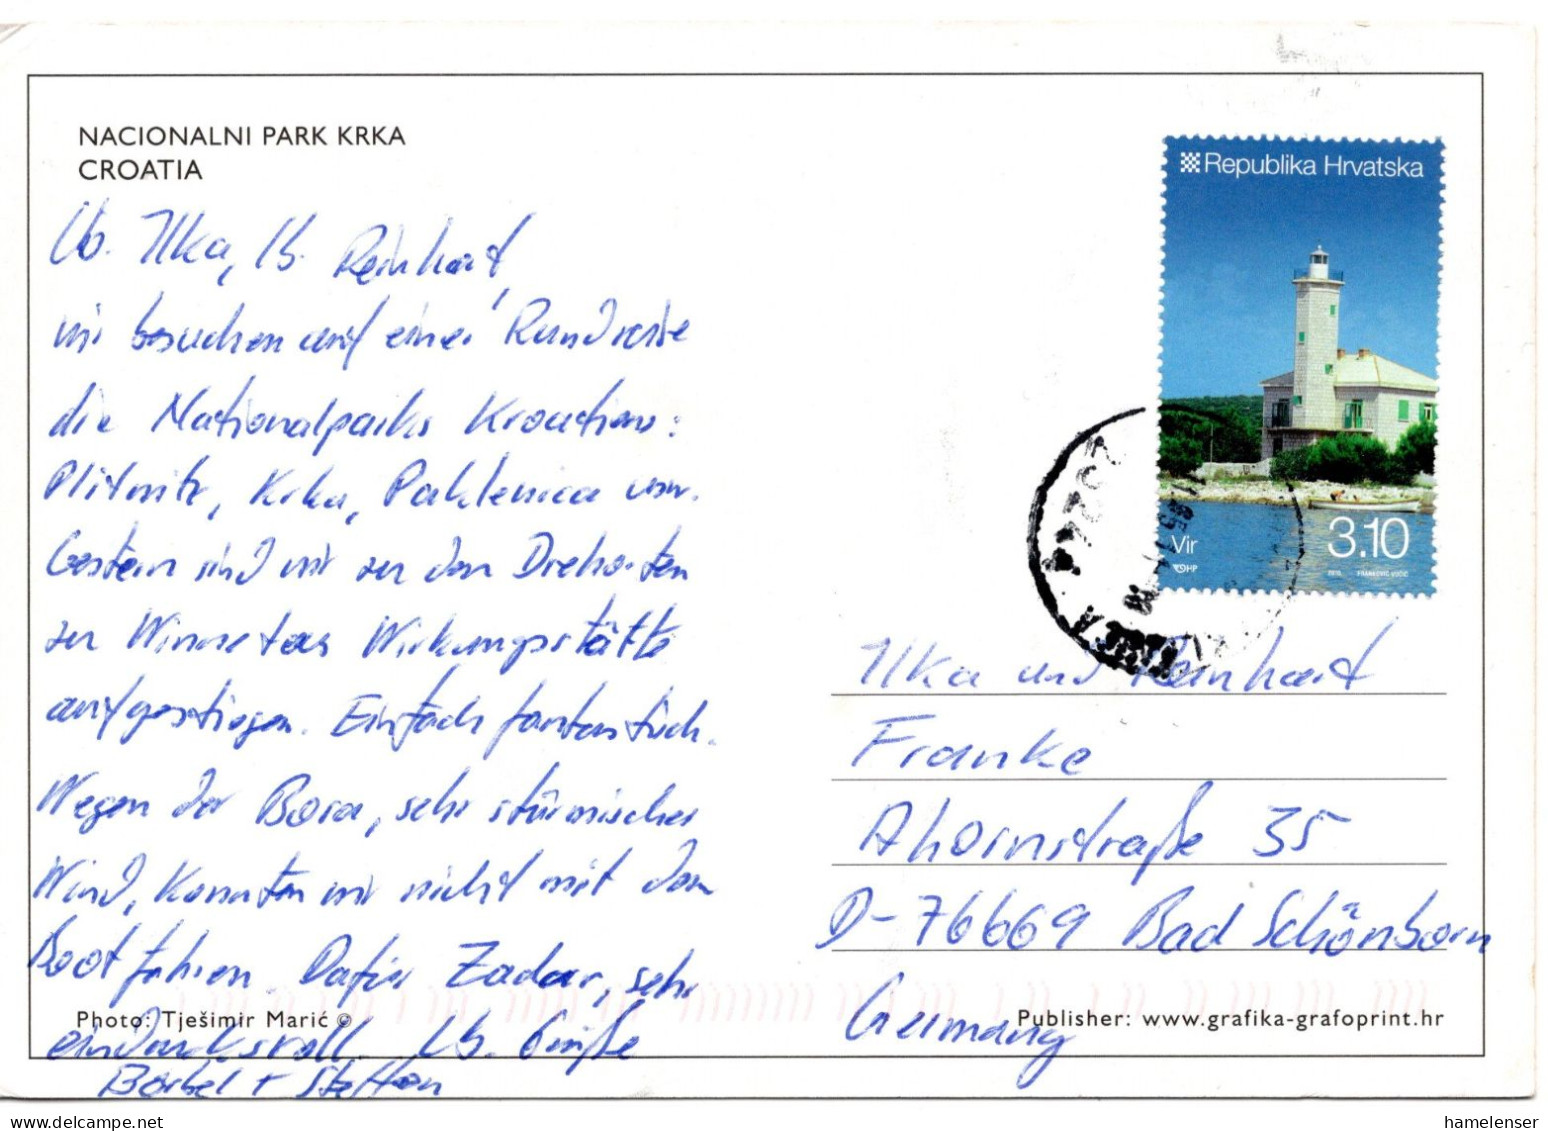 NACIONALNI PARK KRKA
CROATIA
Lb. Ilka, lb. Reinhart,
wir besuchen auf einer Rundreise
die Nationalparks Kroatiens:
Plitwitz, Krka, Paklenica usw.
Gestern sind wir zu den Drehorten
zu Winnetous Wirkungsstätte
aufgestiegen. Einfach fantastisch.
Wegen der Bora, sehr stürmischer
Wind, konnten wir nicht mit dem
Boot fahren. Dafür Zadar, sehr
eindrucksvoll. Lb. Grüße
Bärbel + Steffen
Photo: Tješimir Marić ©
Republika Hrvatska
Vir
3.10
HP
Ilka und Reinhart
Franke
Ahornstraße 35
D-76669 Bad Schönborn
Germany
Publisher: www.grafika-grafoprint.hr
hamelenser